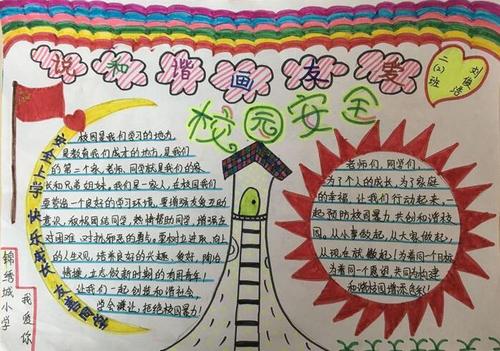 说和谐画友爱
二(2)班
刘俊
校园安全
安全上学 快乐成长
校园是我们学习的地方,
是教育我们成才的地方,是我们
的第二个家,老师、同学就是我们的家
长和兄弟姐妹,我们是一家人,在校园我们
要营造一个良好的学习环境,要增强大免卫的
意识,积极团结同学,热情帮助同学,增强在
对困难、对挫折面的勇气,要树立进取、向上
的人生观,培养良好的兴趣、爱好,陶冶
情操,立志做新时期的有用青年!
让我们一起创造和谐社会,
学会谦让,拒绝校园暴力!
老师们、同学们,
为了个人的成长,为了家庭
的幸福,让我们行动起来,一
起预防校园暴力,共创和谐校
园,从小事做起,从大家做起,
从现在就做起!为着同一个目标
为着同一个愿望,共同为构建
和谐校园增添色彩!
锦绣城小学
我爱你